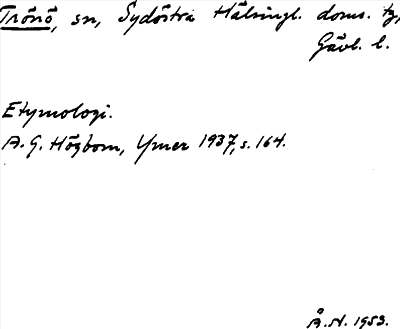 Trönö, sn, Sydöstra Hälsingl. doms. tg,
Gävl. l.
Etymologi.
A. G. Högbom, Ymer 1937, s. 164.
Å.N. 1953.